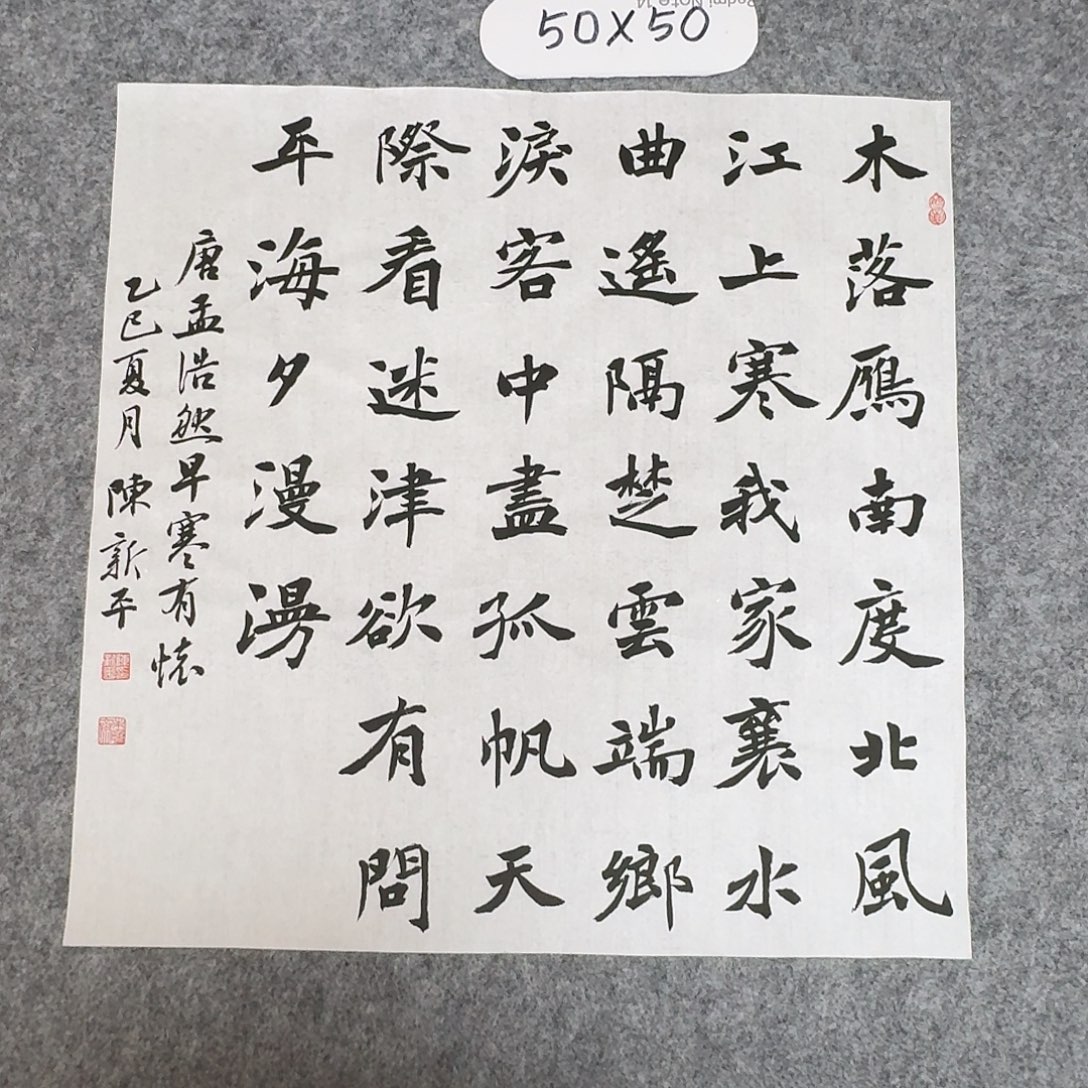 50X50
Redmi Note 14
木落鴈南度北風
江上寒我家襄水
曲遙隔楚雲端鄉
淚客中盡孤帆天
際看迷津欲有問
平海夕漫漫
唐孟浩然早寒有懷
乙巳夏月陳新平